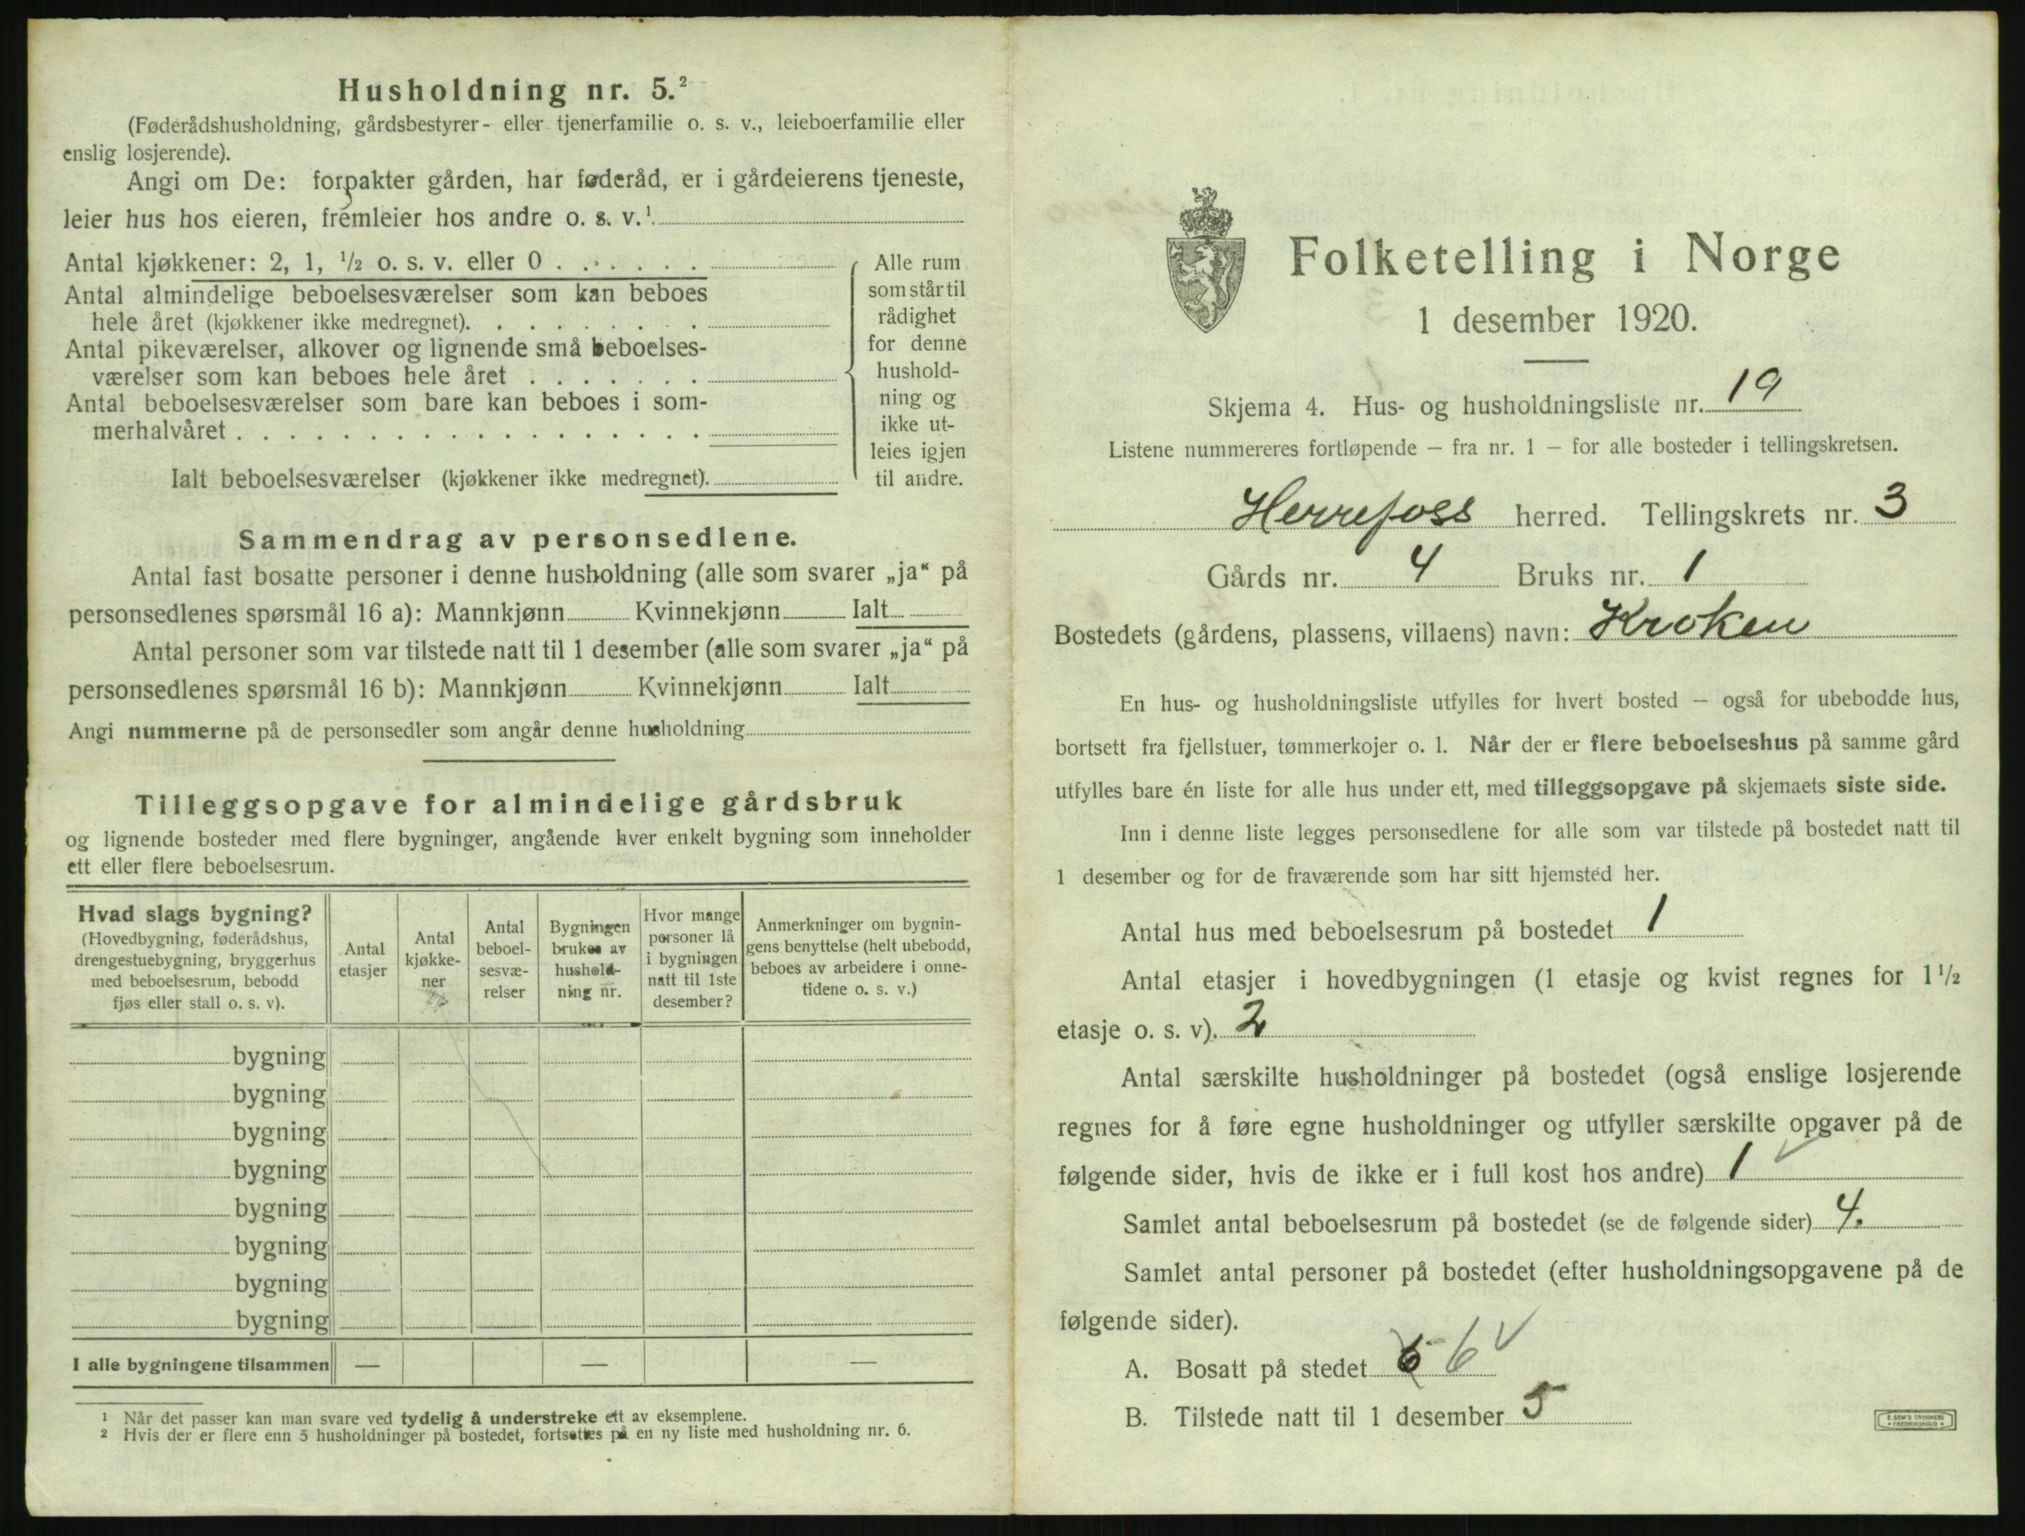 Husholdning nr. 5.²
(Føderådshusholdning, gårdsbestyrer- eller tjenerfamilie o. s. v., leieboerfamilie eller
enslig losjerende).
Angi om De: forpakter gården, har føderåd, er i gårdeierens tjeneste,
leier hus hos eieren, fremleier hos andre o. s. v.¹
Antal kjøkkener: 2, 1, ½ o. s. v. eller 0 . . . . . .
Antal almindelige beboelsesværelser som kan beboes
hele året (kjøkkener ikke medregnet). . . . . . . . .
Antal pikeværelser, alkover og lignende små beboelses-
værelser som kan beboes hele året . . . . . . .
Antal beboelsesværelser som bare kan beboes i som-
merhalvåret . . . . . . . . . . . . . . . . . .
Ialt beboelsesværelser (kjøkkener ikke medregnet).
Alle rum
som står til
rådighet
for denne
hushold-
ning og
ikke ut-
leies igjen
til andre.
Sammendrag av personsedlene.
Antal fast bosatte personer i denne husholdning (alle som svarer „ja“ på
personsedlenes spørsmål 16 a): Mannkjønn Kvinnekjønn Ialt
Antal personer som var tilstede natt til 1 desember (alle som svarer „ja“ på
personsedlenes spørsmål 16 b): Mannkjønn Kvinnekjønn Ialt
Angi nummerne på de personsedler som angår denne husholdning
Tilleggsopgave for almindelige gårdsbruk
og lignende bosteder med flere bygninger, angående hver enkelt bygning som inneholder
ett eller flere beboelsesrum.
Hvad slags bygning?
(Hovedbygning, føderådshus,
drengestuebygning, bryggerhus
med beboelsesrum, bebodd
fjøs eller stall o. s. v).
Antal
etasjer
Antal
kjøkke-
ner
Antal
beboel-
sesvæ-
relser
Bygningen
brukes av
hushold-
ning nr.
Hvor mange
personer lå
i bygningen
natt til 1ste
desember?
Anmerkninger om bygnin-
gens benyttelse (helt ubebodd,
beboes av arbeidere i onne-
tidene o. s. v.)
bygning
bygning
bygning
bygning
bygning
bygning
bygning
bygning
I alle bygningene tilsammen — — —
¹ Når det passer kan man svare ved tydelig å understreke ett av eksemplene.
² Hvis der er flere enn 5 husholdninger på bostedet, fortsettes på en ny liste med husholdning nr. 6.
Folketelling i Norge
1 desember 1920.
Skjema 4. Hus- og husholdningsliste nr. 19
Listene nummereres fortløpende — fra nr. 1 — for alle bosteder i tellingskretsen.
Herrefoss herred. Tellingskrets nr. 3
Gårds nr. 4 Bruks nr. 1
Bostedets (gårdens, plassens, villaens) navn: Kroken
En hus- og husholdningsliste utfylles for hvert bosted — også for ubebodde hus,
bortsett fra fjellstuer, tømmerkojer o. l. Når der er flere beboelseshus på samme gård
utfylles bare én liste for alle hus under ett, med tilleggsopgave på skjemaets siste side.
Inn i denne liste legges personsedlene for alle som var tilstede på bostedet natt til
1 desember og for de fraværende som har sitt hjemsted her.
Antal hus med beboelsesrum på bostedet 1
Antal etasjer i hovedbygningen (1 etasje og kvist regnes for 1½
etasje o. s. v). 2
Antal særskilte husholdninger på bostedet (også enslige losjerende
regnes for å føre egne husholdninger og utfyller særskilte opgaver på de
følgende sider, hvis de ikke er i full kost hos andre) 1
Samlet antal beboelsesrum på bostedet (se de følgende sider) 4.
Samlet antal personer på bostedet (efter husholdningsopgavene på de
følgende sider).
A. Bosatt på stedet 6
B. Tilstede natt til 1 desember 5
E. SEM'S TRYKKERI
FREDRIKSHALD